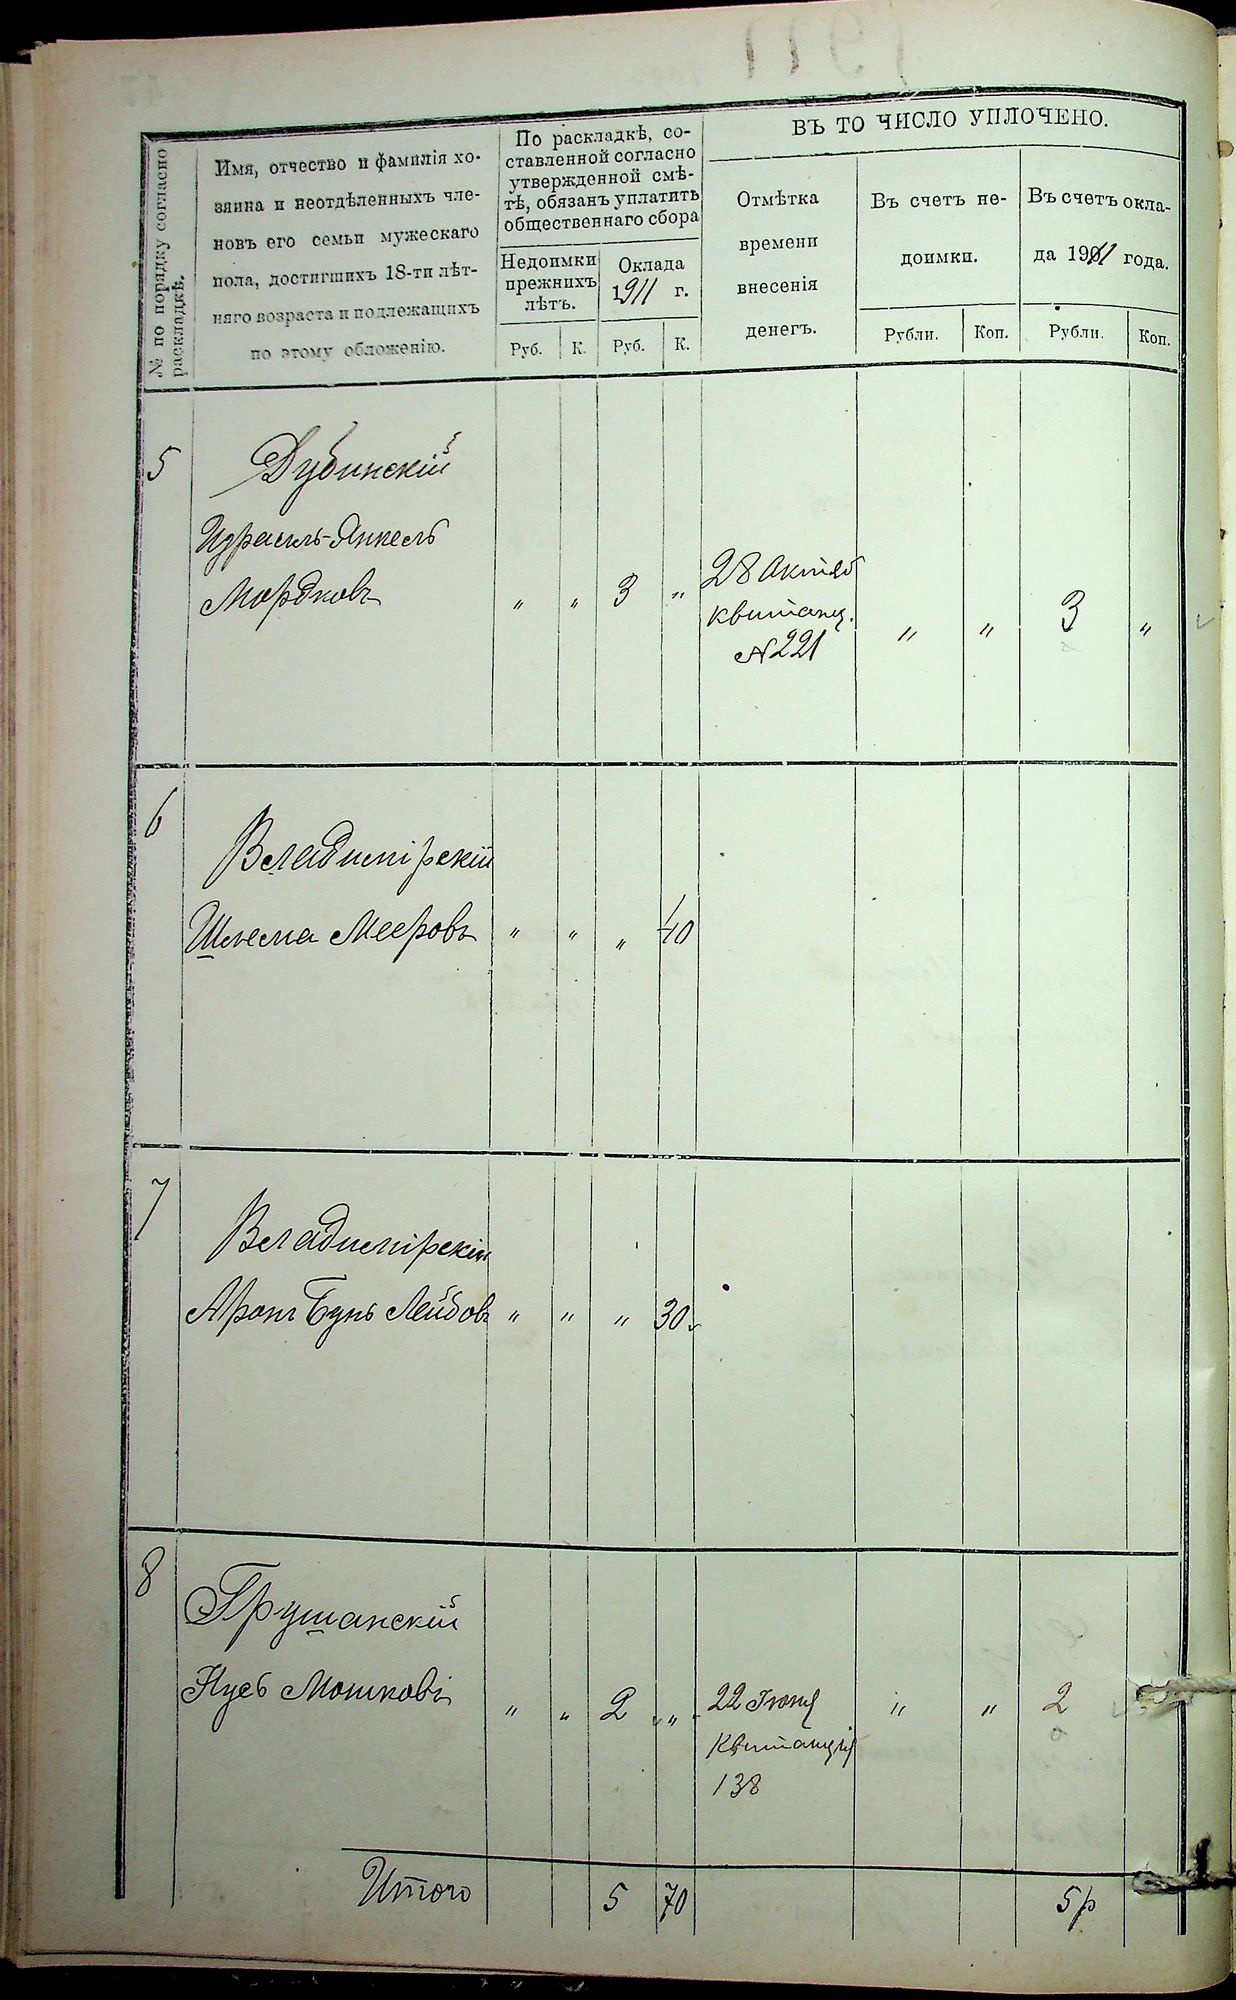 № по порядку согласно
раскладкѣ.
Имя, отчество и фамилія хо-
зяина и неотдѣленныхъ чле-
новъ его семьи мужескаго
пола, достигшихъ 18-ти лѣт-
няго возраста и подлежащихъ
по этому обложенію.
По раскладкѣ, со-
ставленной согласно
утвержденной смѣ-
тѣ, обязанъ уплатить
общественнаго сбора
Недоимки
прежнихъ
лѣтъ.
Оклада
1911 г.
Руб. К. Руб. К.
ВЪ ТО ЧИСЛО УПЛОЧЕНО.
Отмѣтка
времени
внесенія
денегъ.
Въ счетъ не-
доимки.
Въ счетъ окла-
да 1911 года.
Рубли. Коп. Рубли. Коп.
5
Дубинскій
Израиль-Янкель
Мордковъ
" " 3 "
28 Октяб
квитанц.
№ 221
" " 3 "
6
Владимірскій
Шлема Мееровъ " " " 40
7
Владимірскій
Аронъ Бунь Лейбовъ " " " 30
8
Грушанскій
Нусь Мошковъ
" " 2 "
22 Іюня
Квитанція
138
" " 2
Итого 5 70 5 р